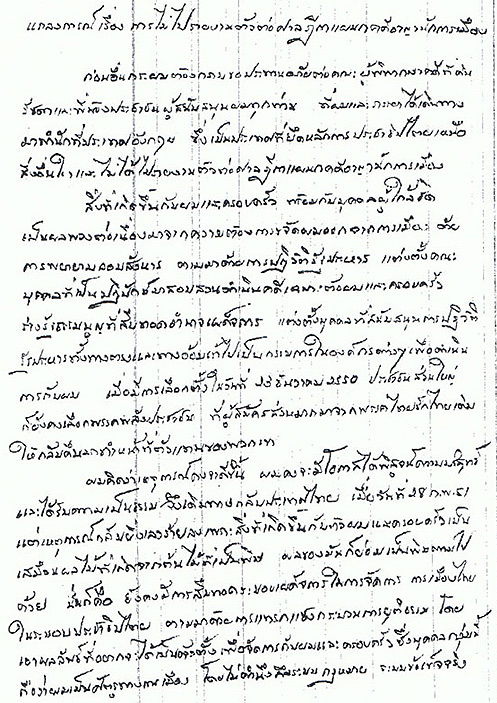 แถลงการณ์เรื่อง การไม่ไปรายงานตัวต่อศาลฎีกาแผนกคดีอาญานักการเมือง
ก่อนอื่นกระผมต้องกราบขอประทานอภัยต่อคณะผู้พิพากษาคดีที่ดิน
รัชดาและพี่น้องประชาชนผู้สนับสนุนผมทุกท่าน ที่ผมและภรรยาได้เดินทาง
มาพำนักที่ประเทศอังกฤษ ซึ่งเป็นประเทศที่ยึดหลักการประชาธิปไตยเหนือ
สิ่งอื่นใดและไม่ได้ไปรายงานตัวต่อศาลฎีกาแผนกคดีอาญานักการเมือง
สิ่งที่เกิดขึ้นกับผมและครอบครัว พร้อมกับบุคคลผู้ใกล้ชิด
เป็นผลพวงต่อเนื่องมาจากความต้องการขจัดผมออกจากการเมือง ด้วย
การพยายามลอบสังหาร ตามมาด้วยการปฏิวัติรัฐประหาร แต่งตั้งคณะ
บุคคลที่เป็นปฏิปักษ์มาสอบสวนดำเนินคดีเฉพาะตัวผมและครอบครัว
ร่างรัฐธรรมนูญที่สืบทอดอำนาจเผด็จการ แต่งตั้งบุคคลที่สนับสนุนการปฏิวัติ
รัฐประหารทั้งทางตรงและทางอ้อมเข้าไปเป็นกรรมการในองค์กรต่างๆเพื่อดำเนิน
การกับผม เมื่อมีการเลือกตั้งในวันที่ 23 ธันวาคม 2550 ประชาชนส่วนใหญ่
ก็ยังคงเลือกพรรคพลังประชาชน ที่ผู้สมัครส่วนมากมาจากพรรคไทยรักไทยเดิม
ให้กลับคืนมาทำหน้าที่ตัวแทนของพวกเขา
ผมคิดว่าเหตุการณ์คงจะดีขึ้น ผมคงจะมีโอกาสได้พิสูจน์ความบริสุทธิ์
และได้รับความเป็นธรรม จึงเดินทางกลับประเทศไทย เมื่อวันที่ 28 ก.พ. 51
แต่เหตุการณ์กลับยิ่งเลวร้ายลง เพราะสิ่งที่เกิดขึ้นกับตัวผมและครอบครัวเป็น
เสมือนผลไม้ที่เกิดจากต้นไม้ที่เป็นพิษ ผลของมันก็ย่อมเป็นพิษตามไป
ด้วย นั่นก็คือ ยังคงมีการสืบทอดระบอบเผด็จการในการจัดการ การเมืองไทย
ในระบอบประชาธิปไตย ตามมาด้วยการแทรกแซงกระบวนการยุติธรรม โดย
เอาผลลัพธ์ที่อยากจะได้เป็นตัวตั้ง เพื่อจัดการกับผมและครอบครัว ซึ่งบุคคลกลุ่มนี้
ถือว่าผมเป็นศัตรูทางการเมือง โดยไม่คำนึงถึงระบบกฎหมาย ระบบข้อเท็จจริง